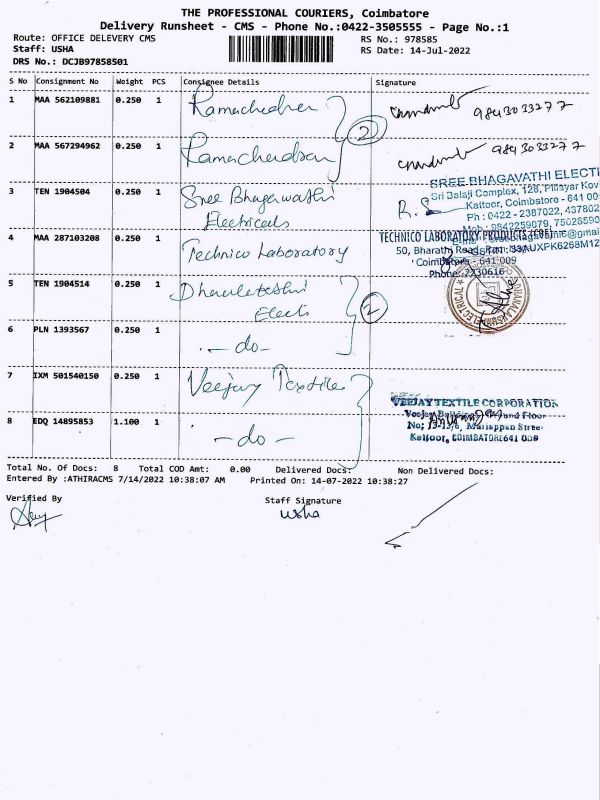 THE PROFESSIONAL COURIERS, Coimbatore
Delivery Runsheet - CMS - Phone No.:0422-3505555 - Page No.:1
Route: OFFICE DELEVERY CMS
RS No.: 978585
Staff: USHA
RS Date: 14-Jul-2022
DRS No.: DCJB97858501
S No Consignment No Weight PCS Consignee Details Signature
1 MAA 562109881 0.250 1 Ramachedren 9843033277
2 MAA 567294962 0.250 1 Ramachendran 9843033277
2
3 TEN 1904504 0.250 1 Sree Bhagawathi
Electricals
R.S
SREE BHAGAVATHI ELECTI
Sri Balaji Complex, 128, Pillayar Kov
Kattoor, Coimbatore - 641 00
Ph : 0422 - 2387022, 437802
Mob : 9842259079, 75028590
4 MAA 287103208 0.250 1 Technico Laboratory
TECHNICO LABORATORY PRODUCTS (CBE)
50, Bharathi Road, Ratn
Coimbatore - 641 009
Phone: 2230616
5 TEN 1904514 0.250 1
Elects
6 PLN 1393567 0.250 1 -do-
2
7 IXM 501540150 0.250 1 Veejay Textile
VEEJAY TEXTILE CORPORATION
8 EDQ 14895853 1.100 1 -do-
Kattoor, COIMBATORE 641 009
Total No. Of Docs: 8 Total COD Amt: 0.00 Delivered Docs: Non Delivered Docs:
Entered By :ATHIRACMS 7/14/2022 10:38:07 AM Printed On: 14-07-2022 10:38:27
Verified By
Staff Signature
Usha